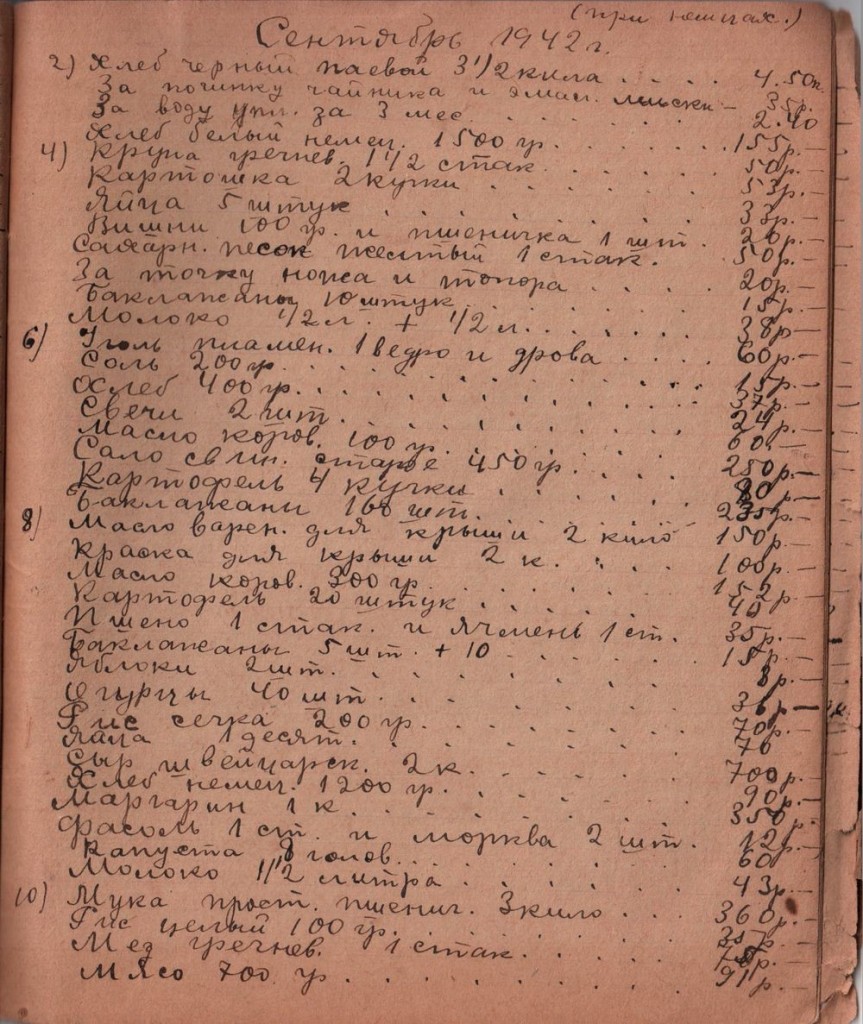 (при немцах.)
Сентябрь 1942 г.
2) Хлеб черный паевой 3 1/2 кила . . . . 4.50к
За починку чайника и эмал. миски – 35р.
За воду упл. за 3 мес. . . . . . . 2.40
Хлеб белый немец. 1500 гр. . . . . . . 155р.–
4) Крупа гречнев. 1 1/2 стак. . . . . . 50р.–
Картошка 2 кучки . . . . . . 53р.–
Яйца 5 штук . . . . . . . 33р.–
Вишни 100 гр. и пшеничка 1 шт. . 20р.–
Сахарн. песок желтый 1 стак. . . 50р.–
За точку ножа и топора . . . . . 20р.–
Баклажаны 10 штук . . . . . . . 15р.–
Молоко 1/2 л. + 1/2 л. . . . . . . 38р–
6) Уголь пламен. 1 ведро и дрова . . . . 60р.–
Соль 200 гр. . . . . . . . . 15р.–
Хлеб 400 гр. . . . . . . . . 37р.–
Свечи 2 шт. . . . . . . . 24р.–
Масло коров. 100 гр. . . . . . 60.–
Сало свин. старое 450 гр. . . . . 250р.–
Картофель 4 кучки . . . . . 80р–
Баклажаны 160 шт. . . . . . 235р.–
8) Масло варен. для крыши 2 кило 150р.
Краска для крыши 2 к. . . . 100р.
Масло коров. 300 гр. . . . . . 152р
Картофель 20 штук . . . . . . 45
Пшено 1 стак. и ячмень 1 ст. . 35р.–
Баклажаны 5 шт. + 10 . . . . . 15р.–
Яблоки 2 шт. . . . . . . . 8р.–
Огурцы 40 шт. . . . . . . . 36р–
Рис сечка 200 гр. . . . . . . 70р.–
Яйца 1 десят. . . . . . . 70
Сыр швейцарск. 2 к. . . . . . 700р.–
Хлеб немец. 1200 гр. . . . . . 90р.–
Маргарин 1 к. . . . . . . 350р.
Фасоль 1 ст. и морква 2 шт. . 12р.–
Капуста 8 голов. . . . . . . 60
Молоко 1 1/2 литра . . . . . . 43р.–
10) Мука прост. пшенич. 3 кило . . . 360р.–
Рис целый 100 гр. . . . . . . 35р.–
Мед гречнев. 1 стак. . . . . . 75р.–
Мясо 700 гр. . . . . . . . 91р.–